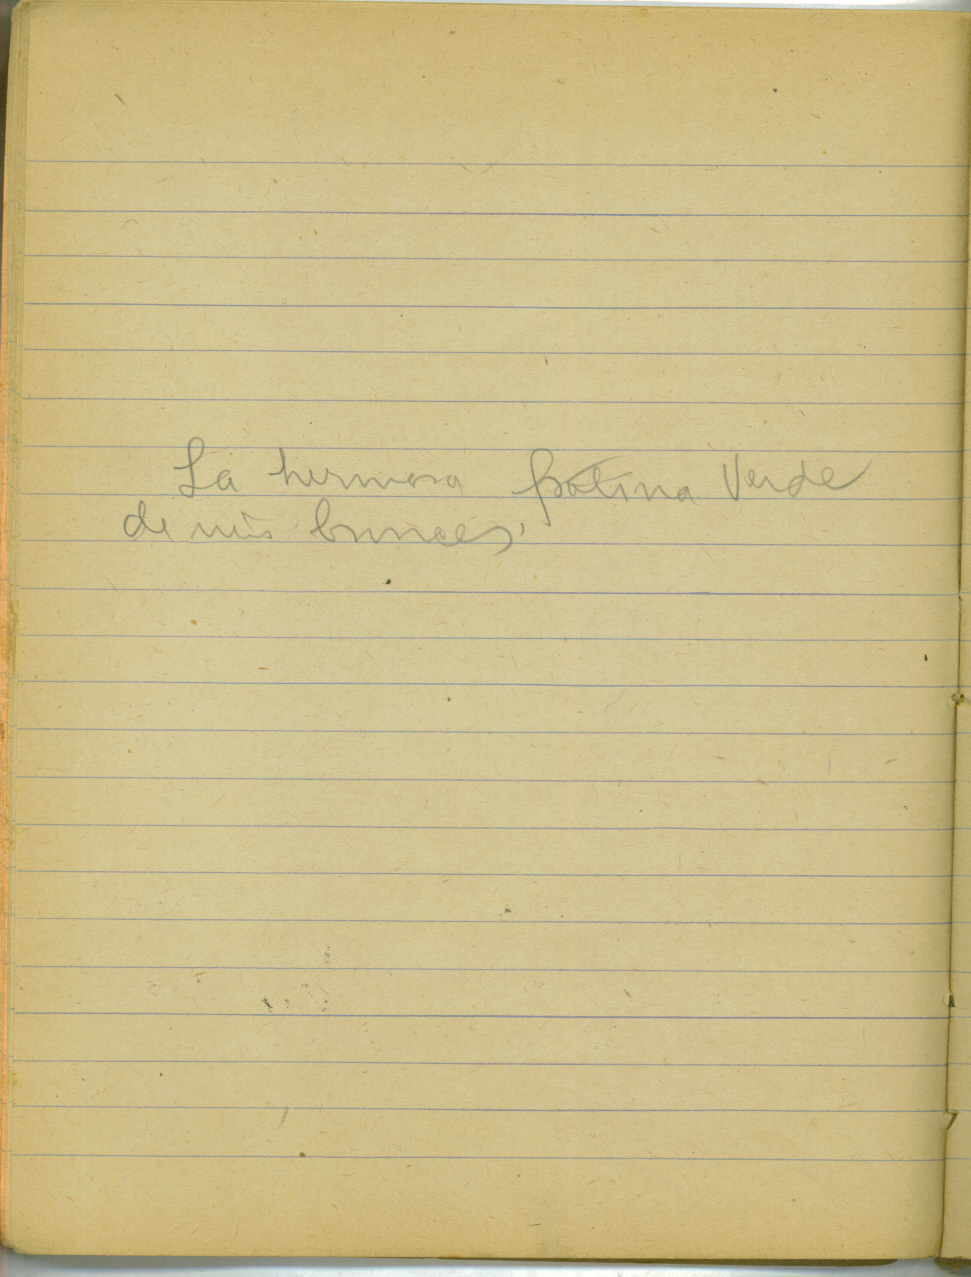 La hermosa patina Verde
de mis bronces,